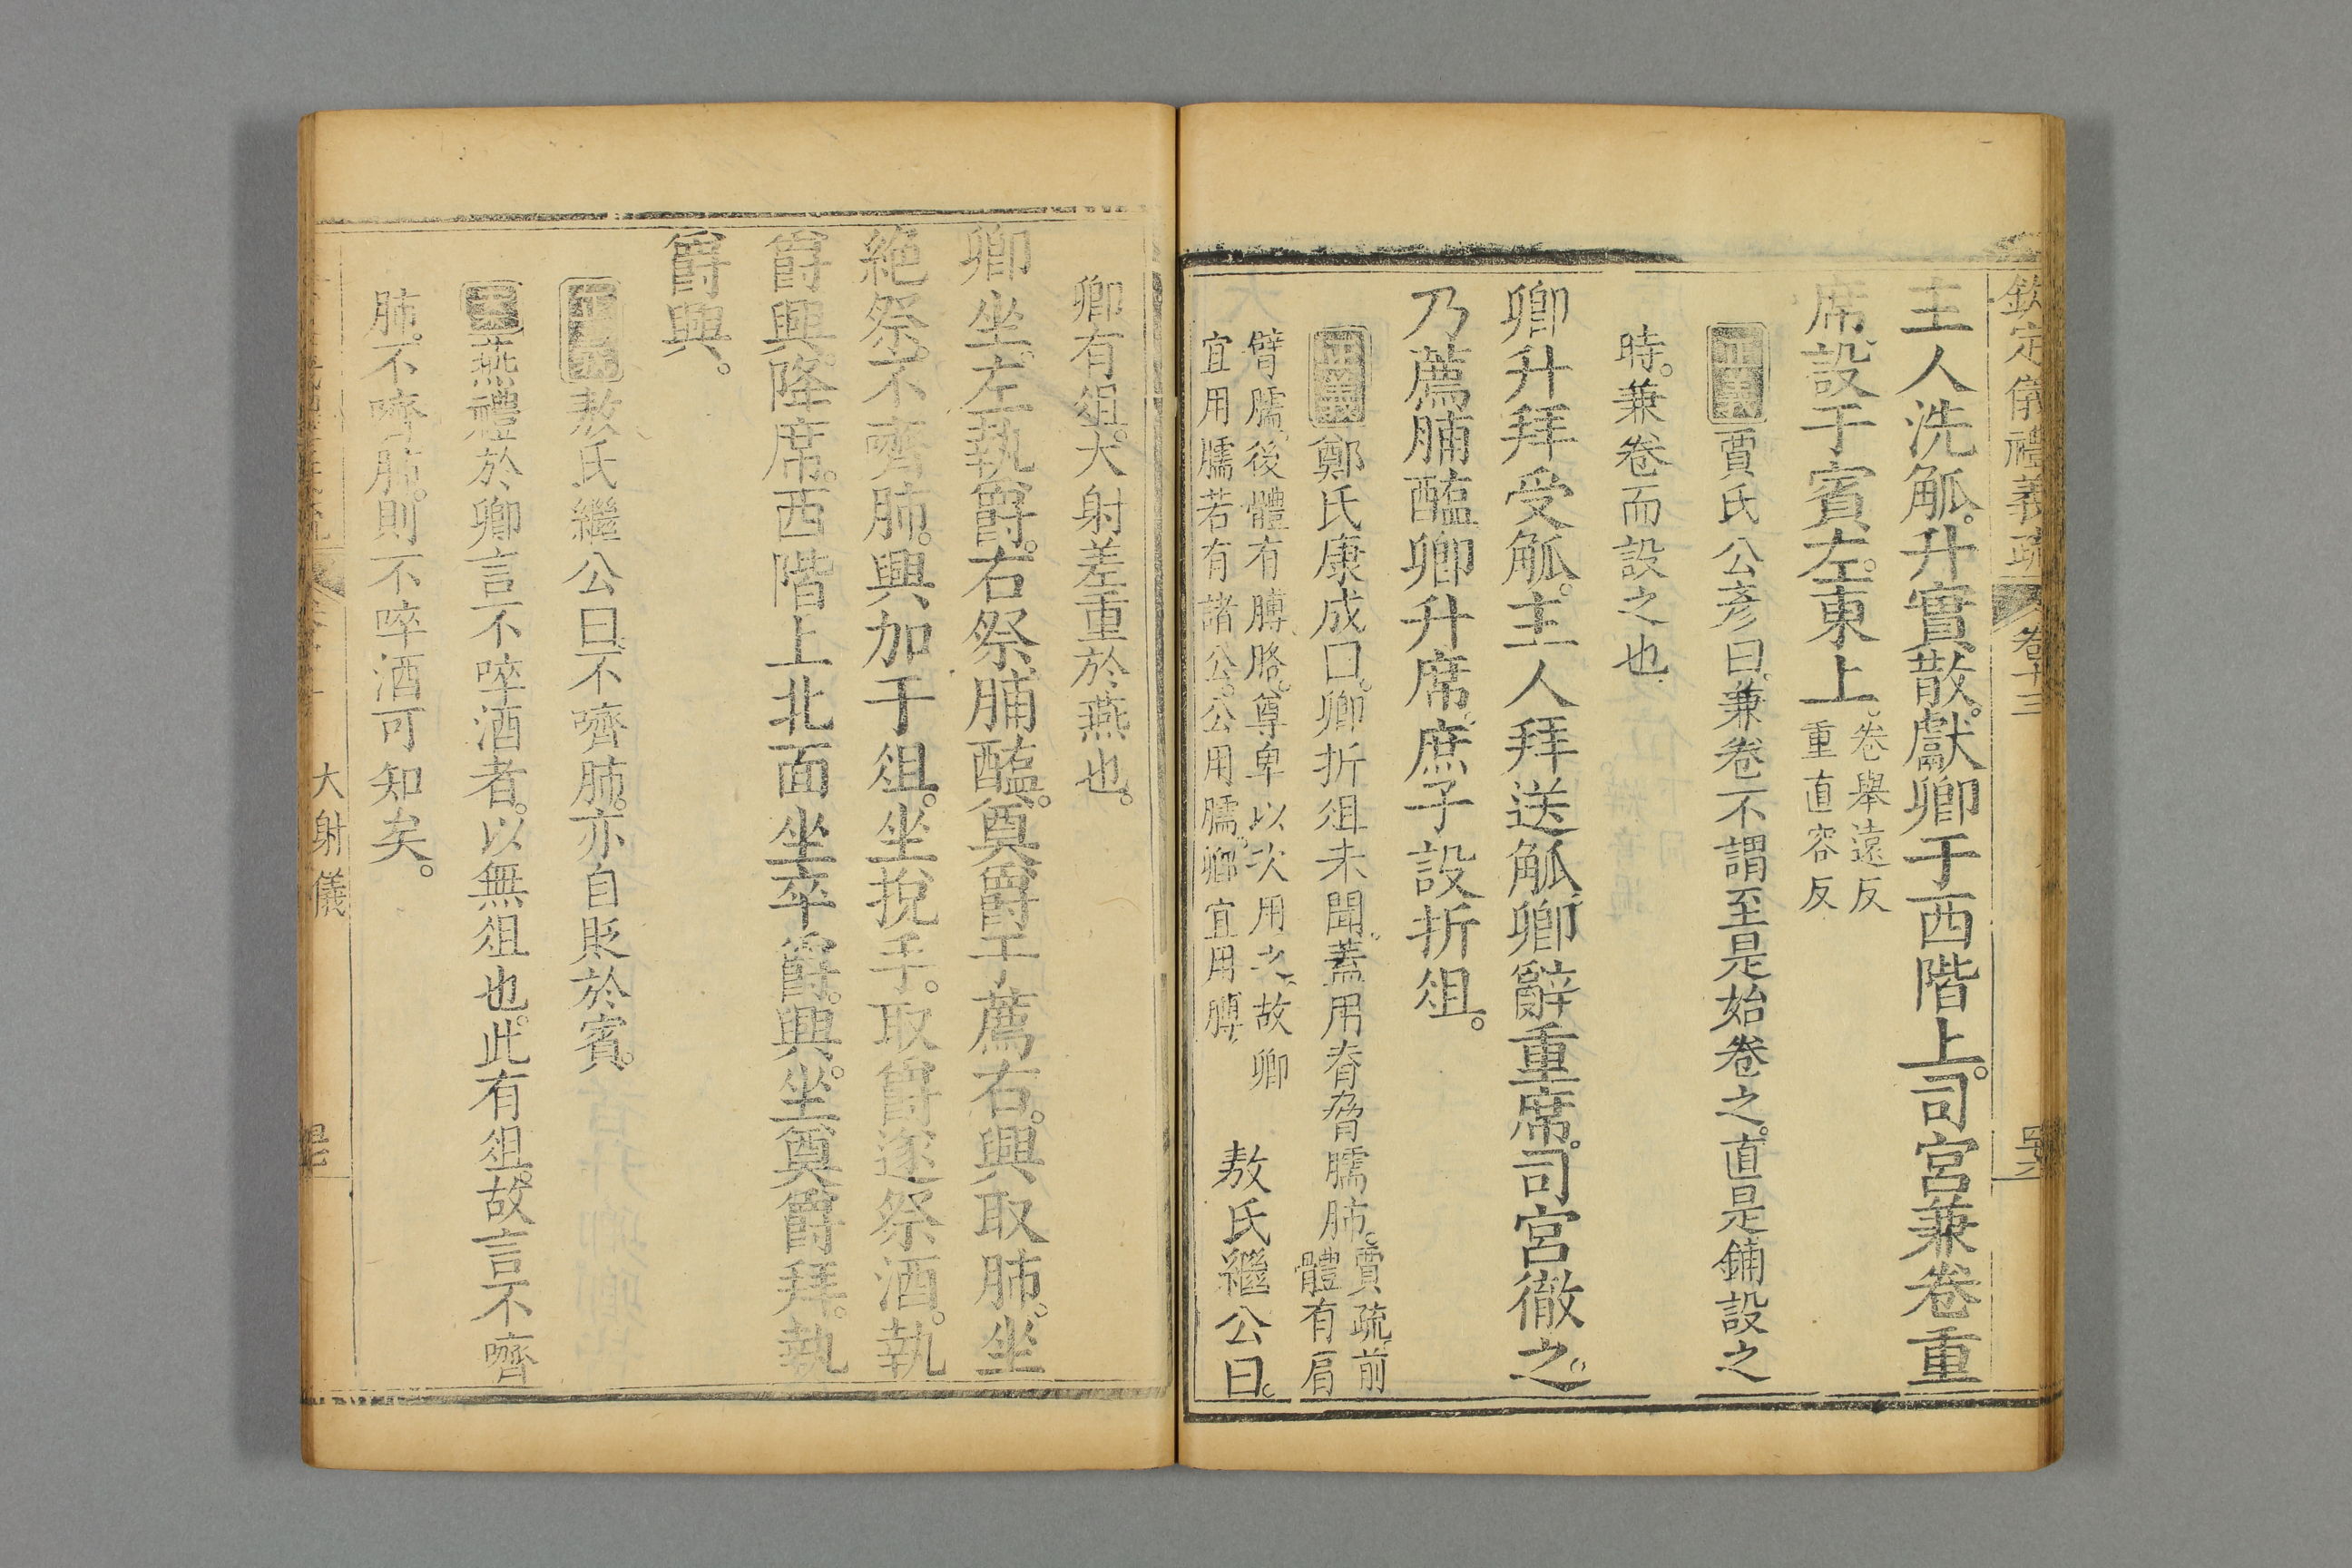 欽定儀禮義疏 卷十三
主人洗觚。升實散。獻卿于西階上。司宮兼卷重
席。設于賓左。東上。卷舉遠反
重直容反
正義賈氏公彥曰。兼卷。不謂至是始卷之。直是鋪設之
時。兼卷而設之也
卿升拜受觚。主人拜送觚。卿辭重席。司宮徹之。
乃薦脯醢。卿升席。庶子設折俎。
正義鄭氏康成曰。卿折俎未聞。蓋用脊脅臑肺。賈疏。前
體有肩
臂臑。後體有膊胳。尊卑以次用之。故卿
宜用臑。若有諸公。公用臑。卿宜用膊
敖氏繼公曰。
卿有俎。大射差重於燕也。
卿坐。左執爵。右祭脯醢。奠爵于薦右。興取肺。坐
絕祭。不嚌肺。興加于俎。坐挩手。取爵。遂祭酒。執
爵興。降席。西階上北面坐卒爵。興。坐奠爵拜。執
爵興。
正義敖氏繼公曰。不嚌肺。亦自貶於賓。
燕禮於卿言不啐酒者。以無俎也。此有俎。故言不嚌
肺。不嚌肺。則不啐酒可知矣。
大射儀